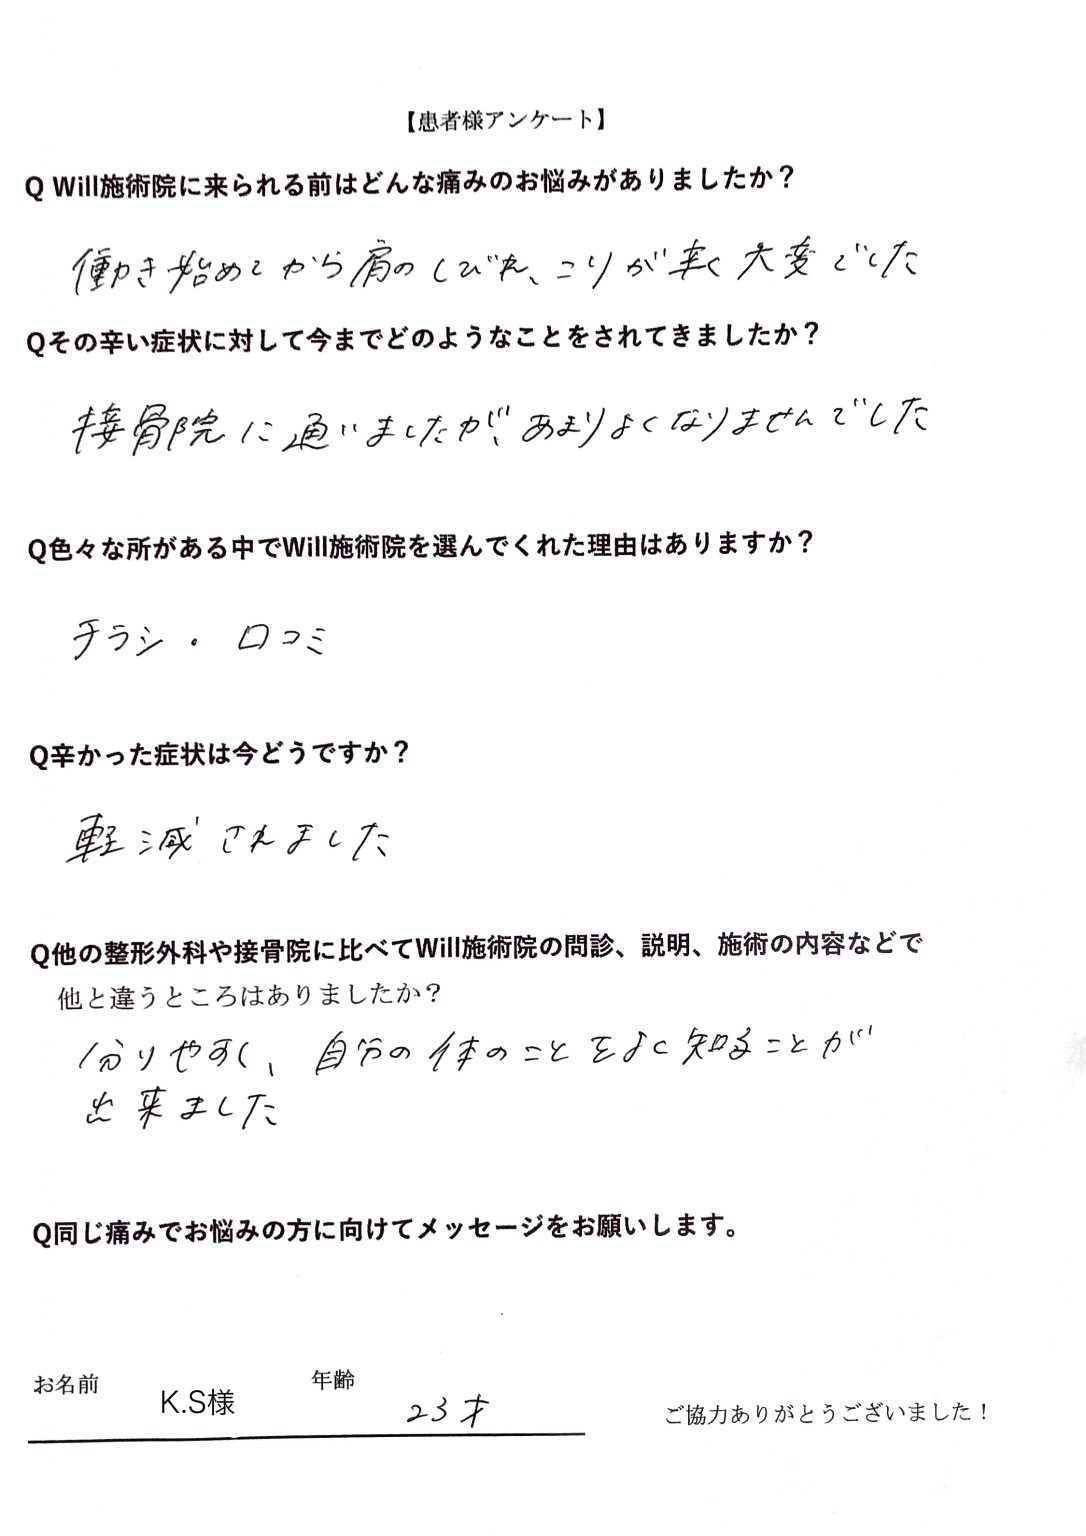 【患者様アンケート】
Q Will施術院に来られる前はどんな痛みのお悩みがありましたか？
働き始めてから肩のしびれ、こりが辛く大変でした
Qその辛い症状に対して今までどのようなことをされてきましたか？
接骨院に通いましたが、あまりよくなりませんでした
Q色々な所がある中でWill施術院を選んでくれた理由はありますか？
チラシ・口コミ
Q辛かった症状は今どうですか？
軽減されました
Q他の整形外科や接骨院に比べてWill施術院の問診、説明、施術の内容などで
他と違うところはありましたか？
分りやすく、自分の体のことをよく知ることが
出来ました
Q同じ痛みでお悩みの方に向けてメッセージをお願いします。
お名前 K.S様 年齢 23才 ご協力ありがとうございました！